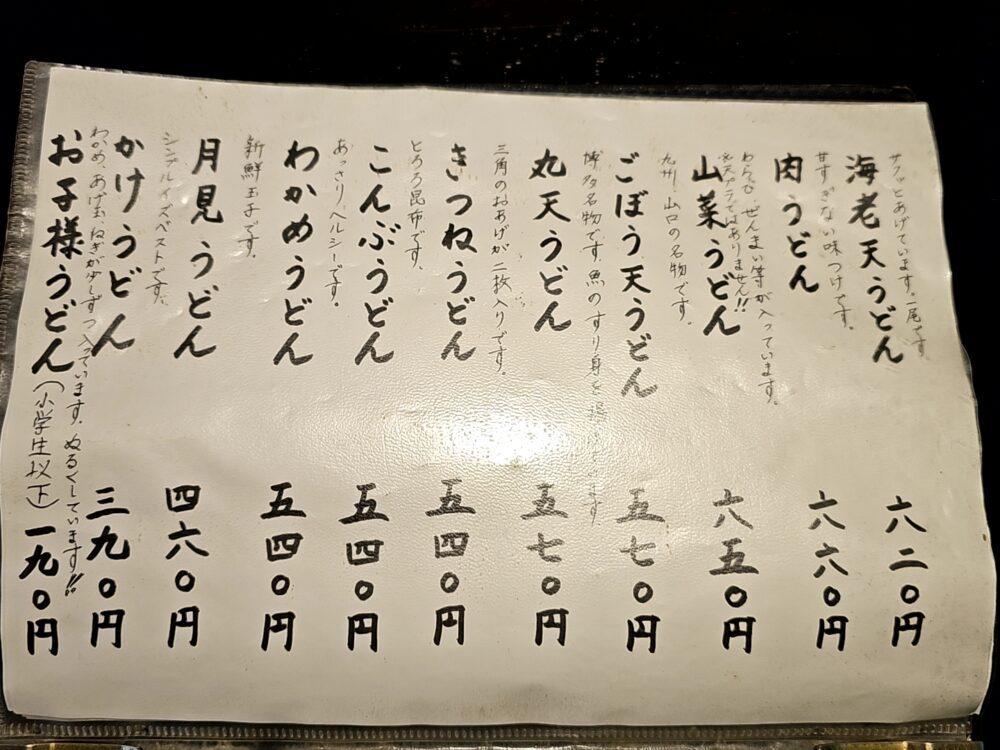 海老天うどん 六二〇円
サクッとあげています。一尾です
肉うどん 六六〇円
甘すぎない味つけです。
山菜うどん 六五〇円
わらび、ぜんまい等が入っています。
※天プラではありません!!
ごぼう天うどん 五七〇円
九州、山口の名物です。
丸天うどん 五七〇円
博多名物です。魚のすり身を揚げています
きつねうどん 五四〇円
三角のおあげが二枚入りです。
こんぶうどん 五四〇円
とろろ昆布です。
わかめうどん 五四〇円
あっさり、ヘルシーです。
月見うどん 四六〇円
新鮮玉子です。
かけうどん 三九〇円
シンプルイズベストです。
お子様うどん(小学生以下) 一九〇円
わかめ、あげ玉、ねぎが少しずつ入っています。ぬるくしています!!